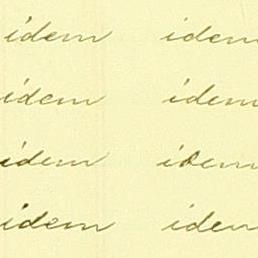 idem idem
idem idem
idem idem
idem idem